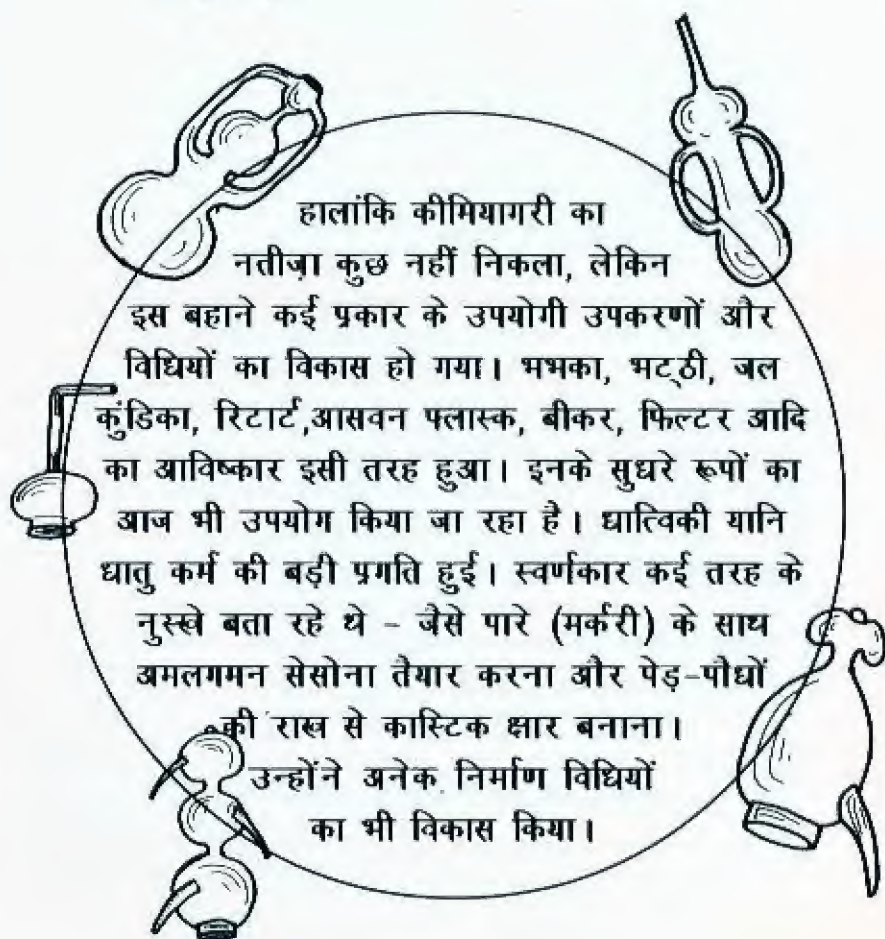 हालांकि कीमियागरी का
नतीज़ा कुछ नहीं निकला, लेकिन
इस बहाने कई प्रकार के उपयोगी उपकरणों और
विधियों का विकास हो गया। भभका, भट्ठी, जल
कुंडिका, रिटार्ट,आसवन फ्लास्क, बीकर, फिल्टर आदि
का आविष्कार इसी तरह हुआ। इनके सुधरे रूपों का
आज भी उपयोग किया जा रहा है। धात्विकी यानि
धातु कर्म की बड़ी प्रगति हुई। स्वर्णकार कई तरह के
नुस्खे बता रहे थे - जैसे पारे (मर्करी) के साथ
अमलगमन सेसोना तैयार करना और पेड़-पौधों
की राख से कास्टिक क्षार बनाना।
उन्होंने अनेक निर्माण विधियों
का भी विकास किया।